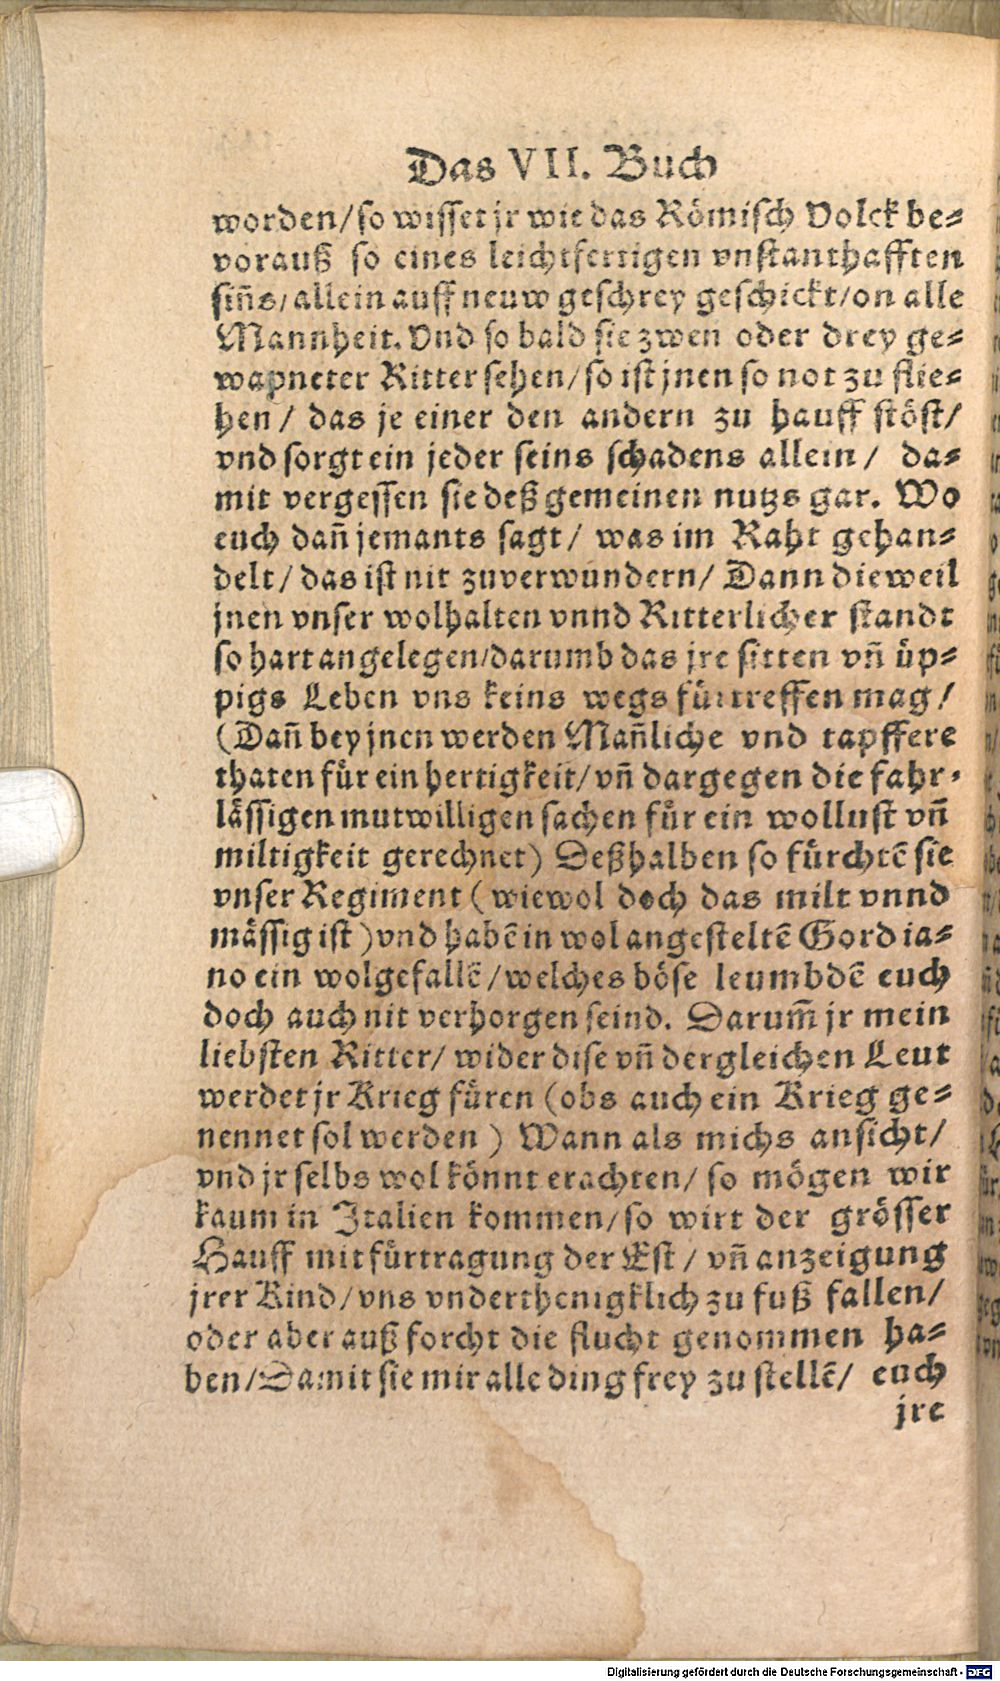 Das VII. Buch
worden/so wisset jr wie das Römisch Volck be-
vorauß so eines leichtfertigen vnstanthafften
siñs/allein auff neuw geschrey geschickt/on alle
Mannheit. Vnd so bald sie zwen oder drey ge-
wapneter Ritter sehen/so ist jnen so not zu flie-
hen/ das je einer den andern zu hauff stöst/
vnd sorgt ein jeder seins schadens allein/ da-
mit vergessen sie deß gemeinen nutzs gar. Wo
euch dañ jemants sagt/ was im Raht gehan-
delt/das ist nit zuverwundern/ Dann dieweil
jnen vnser wolhalten vnnd Ritterlicher standt
so hart angelegen/darumb das jre sitten vñ üp-
pigs Leben vns keins wegs fürtreffen mag/
(Dañ bey jnen werden Mañliche vnd tapffere
thaten für ein hertigkeit/vñ dargegen die fahr-
lässigen mutwilligen sachen für ein wollust vñ
miltigkeit gerechnet) Deßhalben so fürchtē sie
vnser Regiment (wiewol doch das milt vnnd
mässig ist) vnd habē in wol angesteltē Gordia-
no ein wolgefallē/welches böse leumbdē euch
doch auch nit verhorgen seind. Darum̃ jr mein
liebsten Ritter/ wider dise vñ dergleichen Leut
werdet jr Krieg füren (obs auch ein Krieg ge-
nennet sol werden) Wann als michs ansicht/
vnd jr selbs wol könnt erachten/ so mögen wir
kaum in Italien kommen/so wirt der grösser
Hauff mit fürtragung der Est/ vñ anzeigung
jrer Kind/vns vnderthenigklich zu fuß fallen/
oder aber auß forcht die flucht genommen ha-
ben/Damit sie mir alle ding frey zu stellē/ euch
jre
Digitalisierung gefördert durch die Deutsche Forschungsgemeinschaft - DFG